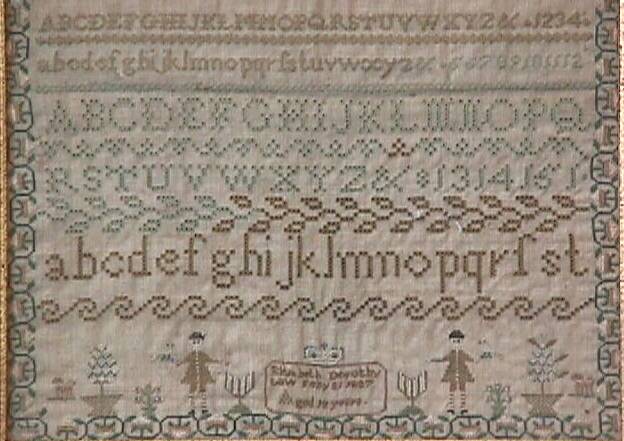 ABCDEFGHIJKLMNOPQRSTUVWXYZ&. 1234
abcdefghijklmnopqrfstuvwxyz&. 5 6 7 8 9 10 11 12
ABCDEFGHIJKLMNOPQ
RSTUVWXYZ& 13 14 15 1
abcdefghijklmnopqrſst
Elizabeth Dorothy
Aged years